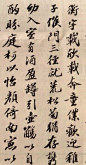 衡宇載欣載奔僮僕歡迎稚
子候門三徑就荒松菊猶存攜
幼入室有酒盈樽引壺觴以自
酌眄庭柯以怡顏倚南窗以